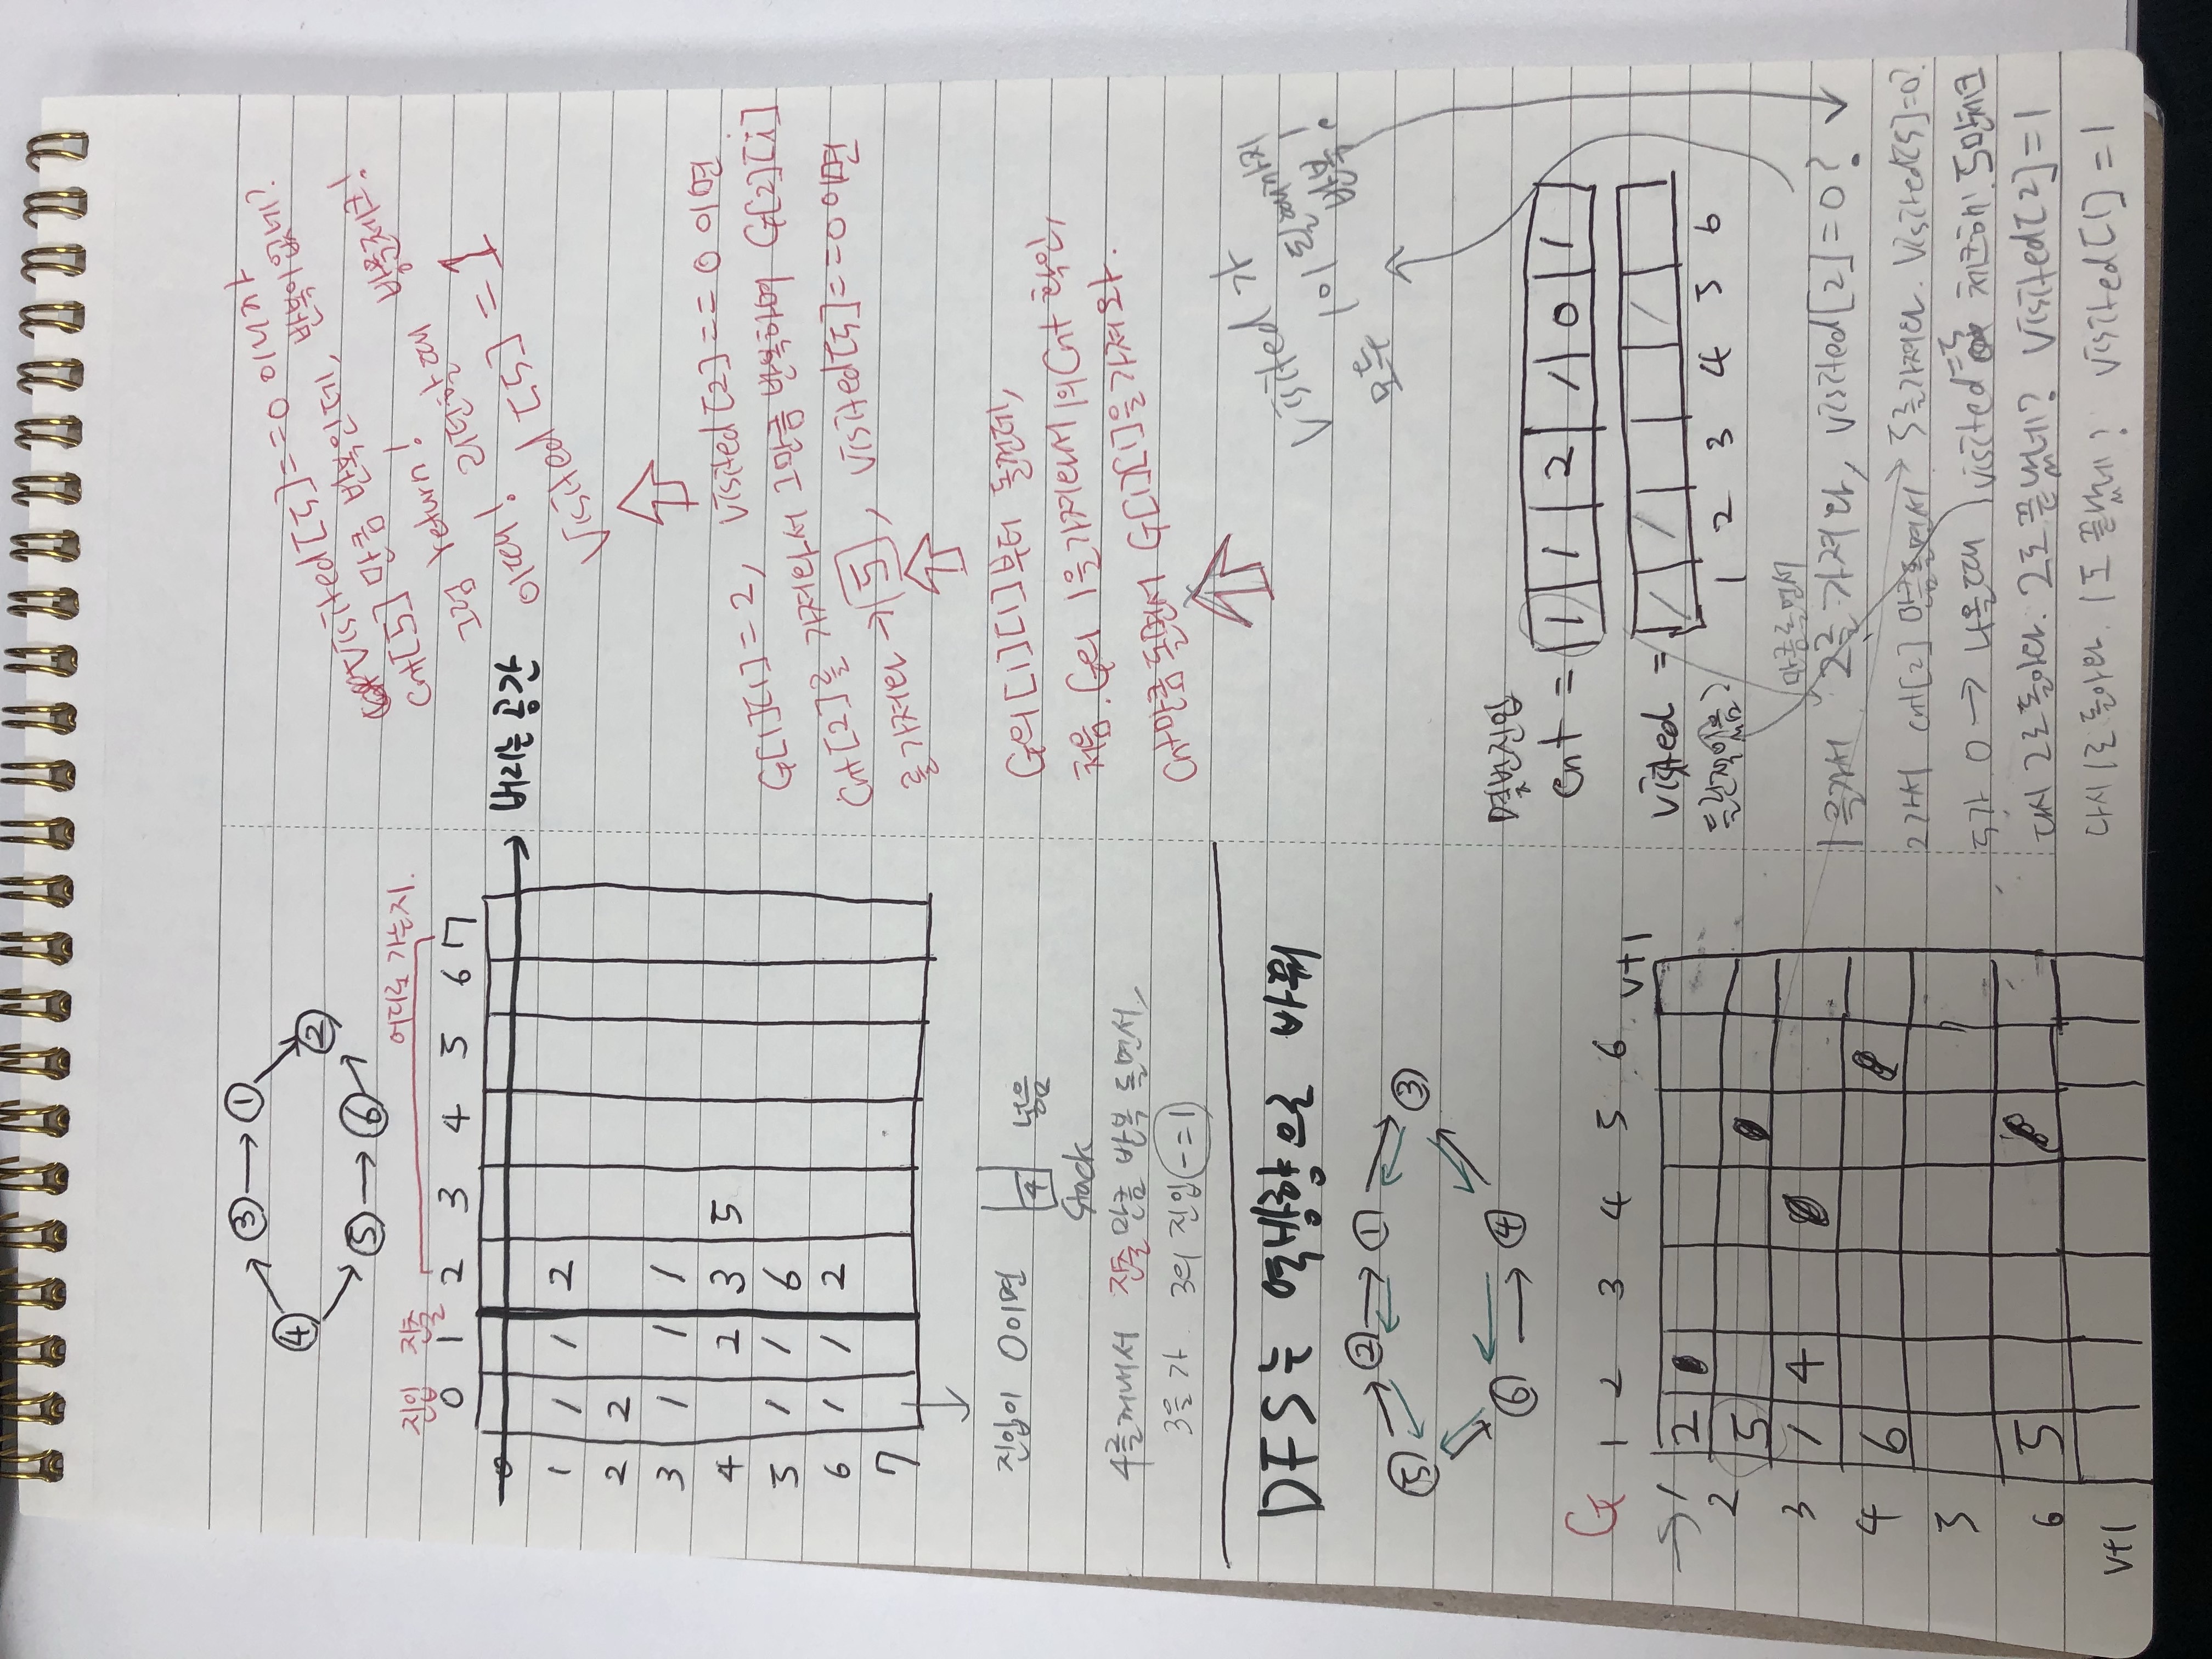 ③ → ①
④
②
⑤ → ⑥
어디로 가는지.
진입 진출
0 1 2 3 4 5 6 7
0 → 버리는 공간
1 1 1 2
2 2
3 1 1 1
4 2 3 5
5 1 1 6
6 1 1 2
7
진입이 0이면 4 넣음
Stack
4를 꺼내서 진출 만큼 반복 돌면서,
3을 가 3의 진입 -=1
DFS는 역방향으로 바꿔
② → ①
⑤
③
⑥ → ④
G
1 2 3 4 5 6 V+1
→ 1 2
2 5
3 1 4
4 6
5
6 5
V+1
Visited[5]==0 이니까
Cnt[5] 만큼 반복인데, 반복이 없네?
그럼 return!
이때! 리턴할때 방문체크!
Visited[5] = 1
G[1][1] = 2, Visited[2] == 0 이면
Cnt[2]를 가져와서 그만큼 반복하며 G[2][i]
를 가져와 → 5, Visited[5]==0이면
G의 [1][1]부터 돌껀데,
처음. G의 1을 가져와서 1의 Cnt 확인,
Cnt만큼 돌면서 G[1][1]을 가져와.
Visited 가
모두 1이 될때까지
반복!
몇번진입
Cnt = 1 1 2 1 0 1
Visited = / / /
들른적있음?
1 2 3 4 5 6
만큼돌면서
1을가서 2를 가져와, Visited[2]=0?
2가서 cnt[2] 만큼돌면서 5를가져와. Visited[5]=0?
5가 0 → 나올때 Visited 체크해! 5만체크
다시 2로 돌아와. 2도 끝났네? Visited[2]=1
다시 1로 돌아와. 1도 끝났네? Visited[1] = 1